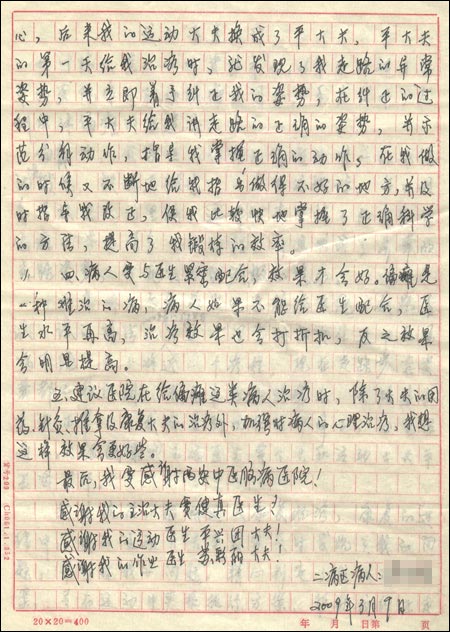 心，后来我的运动大夫换成了平大夫，平大夫
的第一天给我治疗时，就发现了我走路的异常
姿势，并立即着手纠正我的姿势，在纠正的过
程中，平大夫给我讲走路的正确的姿势，并示
范分解动作，指导我掌握正确的动作，在我做
的时候又不断地给我指出做得不好的地方，并及
时指导我改正，使我比较快地掌握了正确科学
的方法，提高了我锻炼的效率。
四、病人要与医生紧密配合，效果才会好。偏瘫是
一种难治的病，病人如果不能给医生配合，医
生水平再高，治疗效果也会打折扣，反之效果
会明显提高。
五、建议医院在给偏瘫这类病人治疗时，除了大夫的用
药，针灸，推拿及康复大夫的治疗外，加强对病人的心理治疗，我想
这样效果会更好些。
最后，我要感谢西安中医脑病医院！
感谢我的主治大夫 医生！
感谢我的运动医生平兴团大夫！
感谢我的作业医生 大夫！
二病区病人：
2009年3月9日
20×20=400
年 月 日第 页